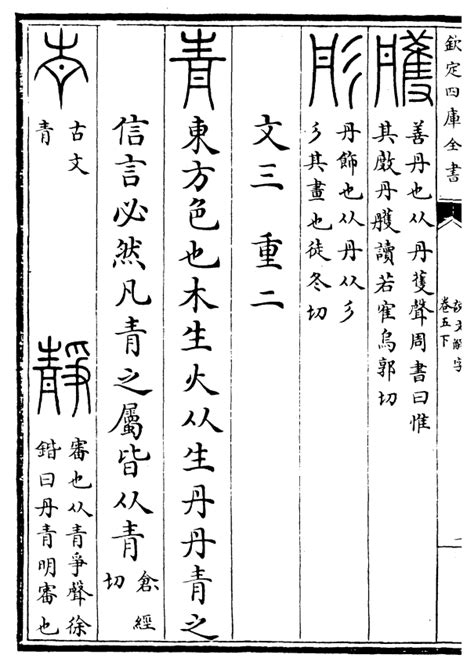 欽定四庫全書
說文解字
卷五下
雘
善丹也从丹蒦聲周書曰惟
其丹雘讀若寉烏郭切
彤
丹飾也从丹从彡
彡其畫也徒冬切
文三 重二
青東方色也木生火从生丹丹青之
信言必然凡青之屬皆从青
倉經
切
古文
青
靜
審也从青爭聲徐
鍇曰丹青明審也